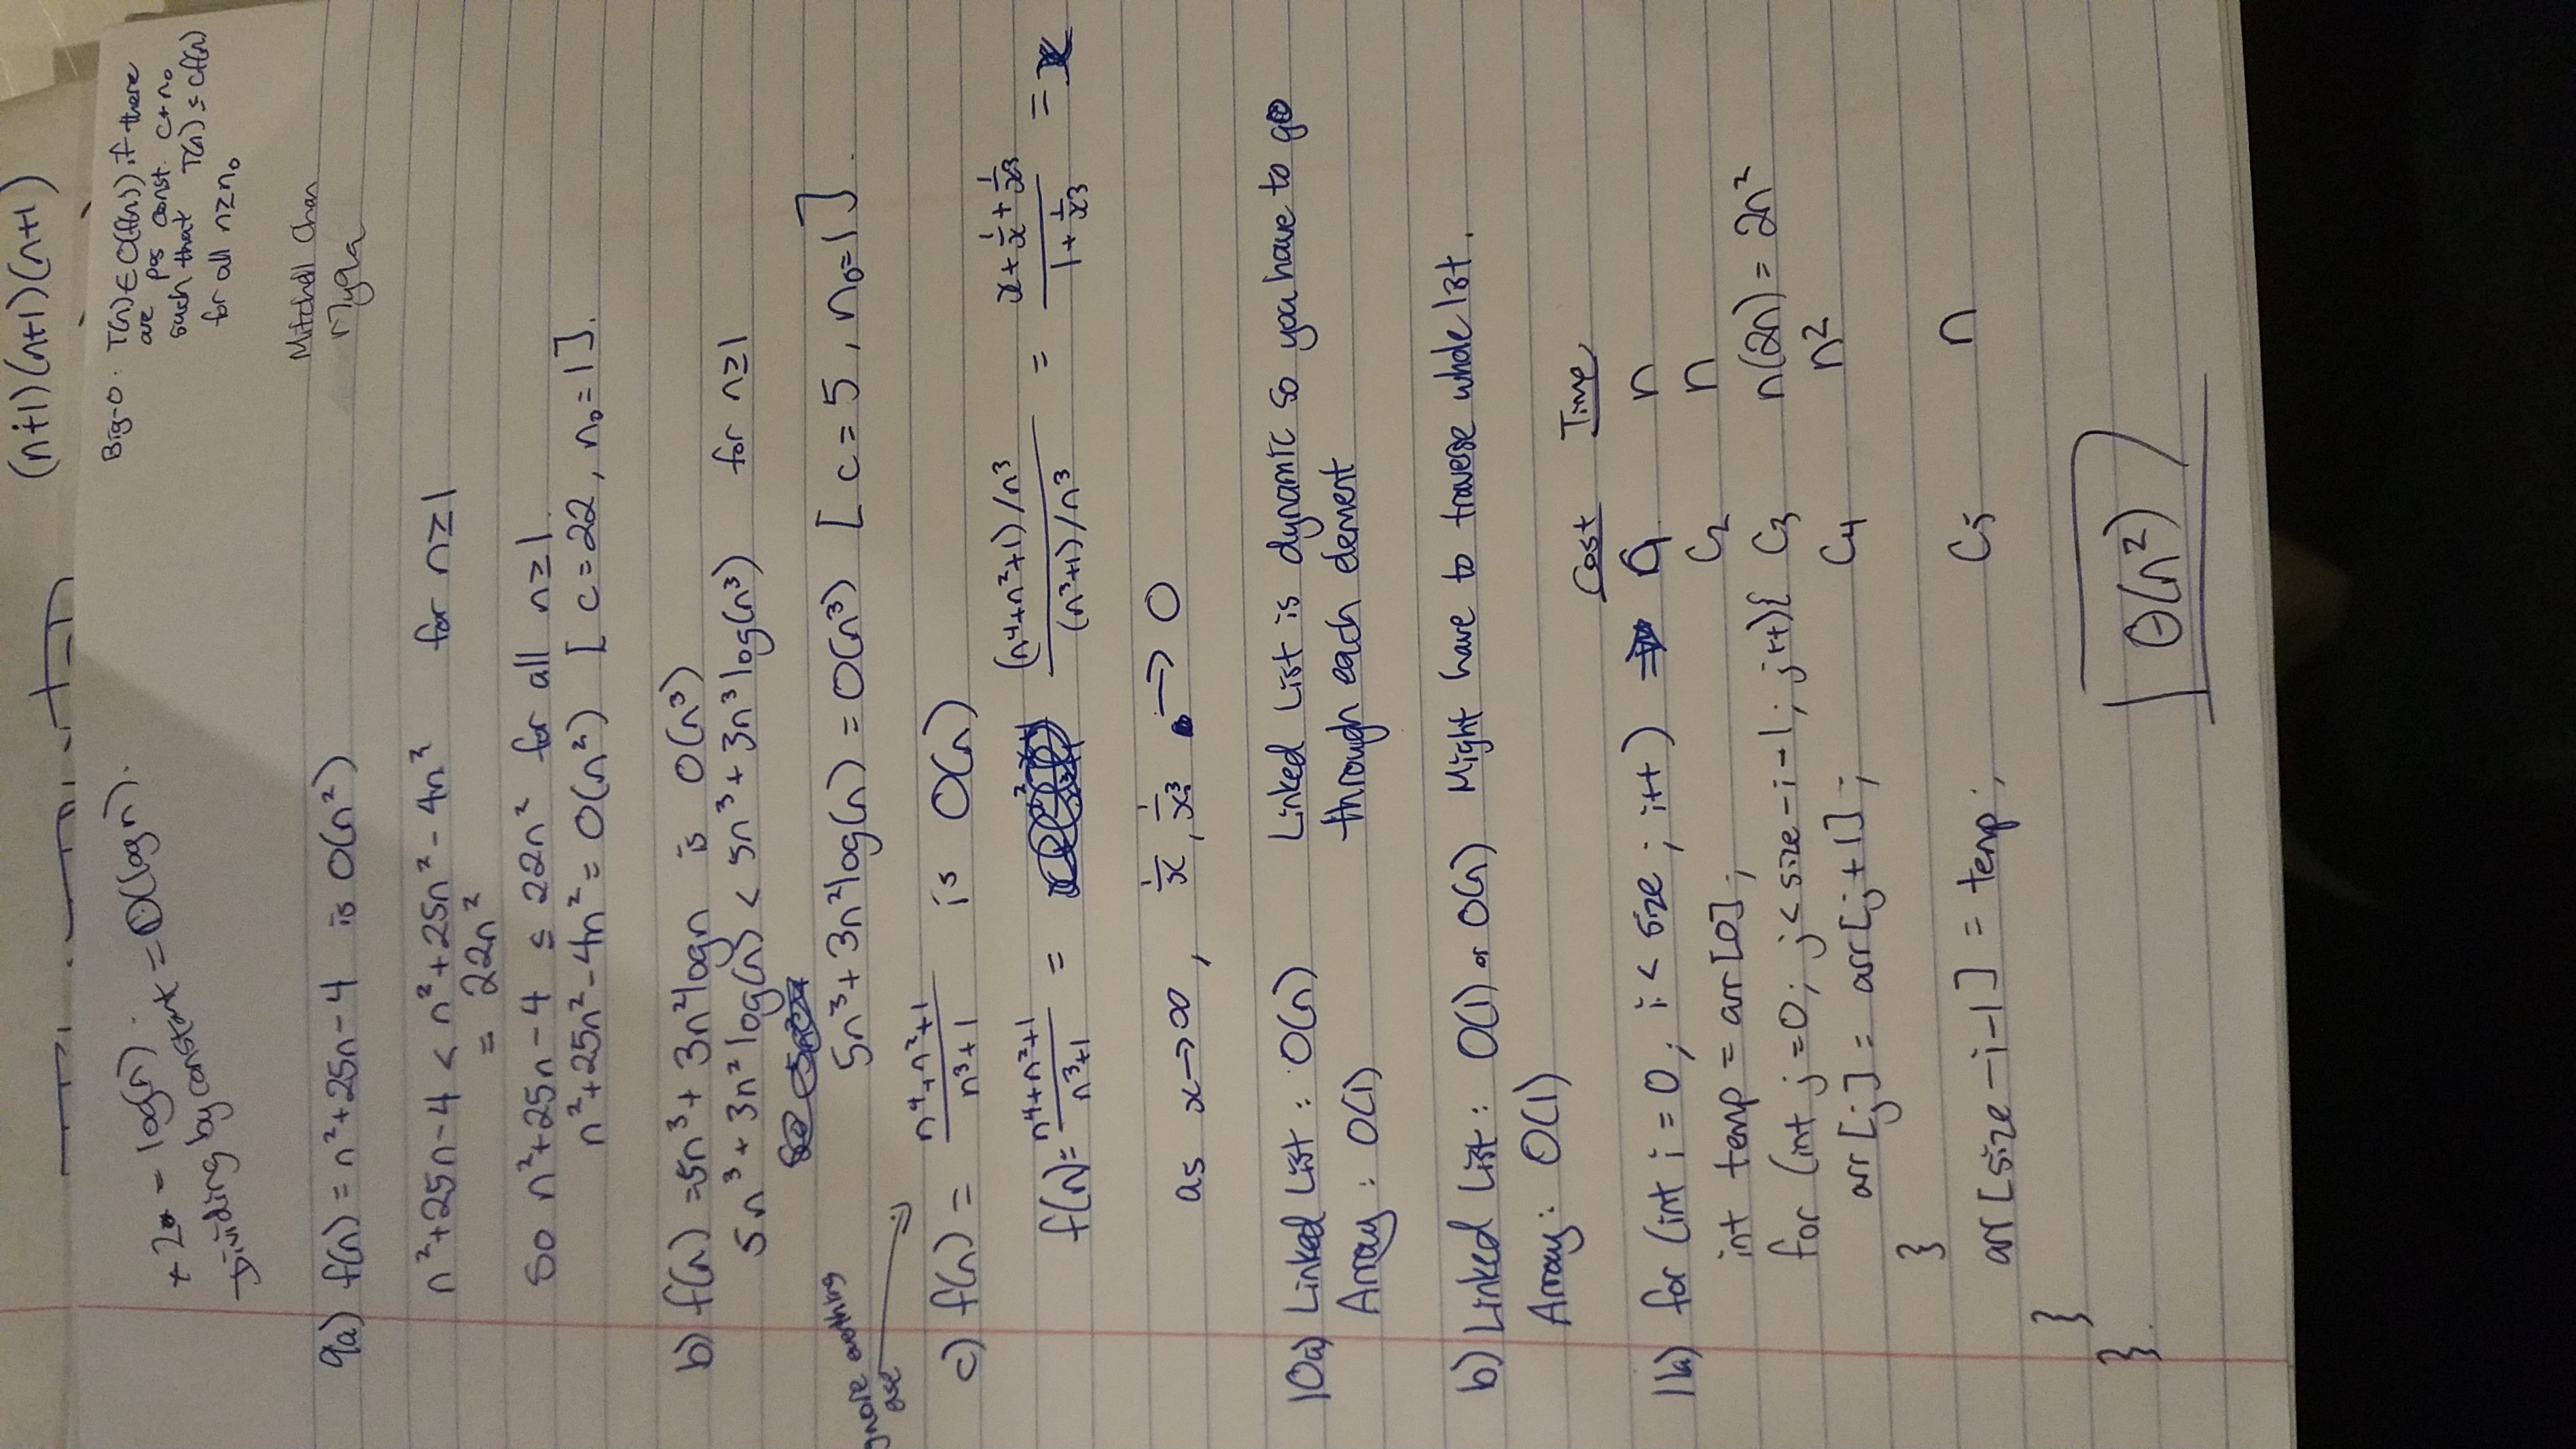 (n+1)(n+1)(n+1)
Big-O: T(n) ∈ O(f(n)) if there
are pos const. c + n₀
such that T(n) ≤ cf(n)
for all n≥n₀
= log(n).
Dividing by constant = O(logn).
Mitchell Chan
9a) f(n) = n²+25n-4 is O(n²)
n²+25n-4 < n²+25n²-4n² for n≥1
= 22n²
So n²+25n-4 ≤ 22n² for all n≥1.
n²+25n²-4n² = O(n²) [c=22, n₀=1].
b) f(n) = 5n³+3n²logn is O(n³)
5n³+3n²log(n) < 5n³+3n³log(n³) for n≥1
5n³+3n²log(n) = O(n³) [c=5, n₀=1].
c) f(n) = (n⁴+n²+1)/(n³+1) is O(n)
f(n) = (n⁴+n²+1)/(n³+1) = ((n⁴+n²+1)/n³)/((n³+1)/n³) = (x+1/x+1/x³)/(1+1/x³) = x
as x→∞, 1/x, 1/x³ → 0
10a) Linked List: O(n) Linked List is dynamic so you have to go
Array: O(1) through each element
b) Linked List: O(1) or O(n) Might have to traverse whole list.
Array: O(1)
Cost Time
11a) for (int i = 0; i < size; i++) → C₁ n
int temp = arr[0]; C₂ n
for (int j=0; j<size-i-1; j++){ C₃ n(2n) = 2n²
arr[j] = arr[j+1]; C₄ n²
}
arr[size-i-1] = temp; C₅ n
}
}.
Θ(n²)